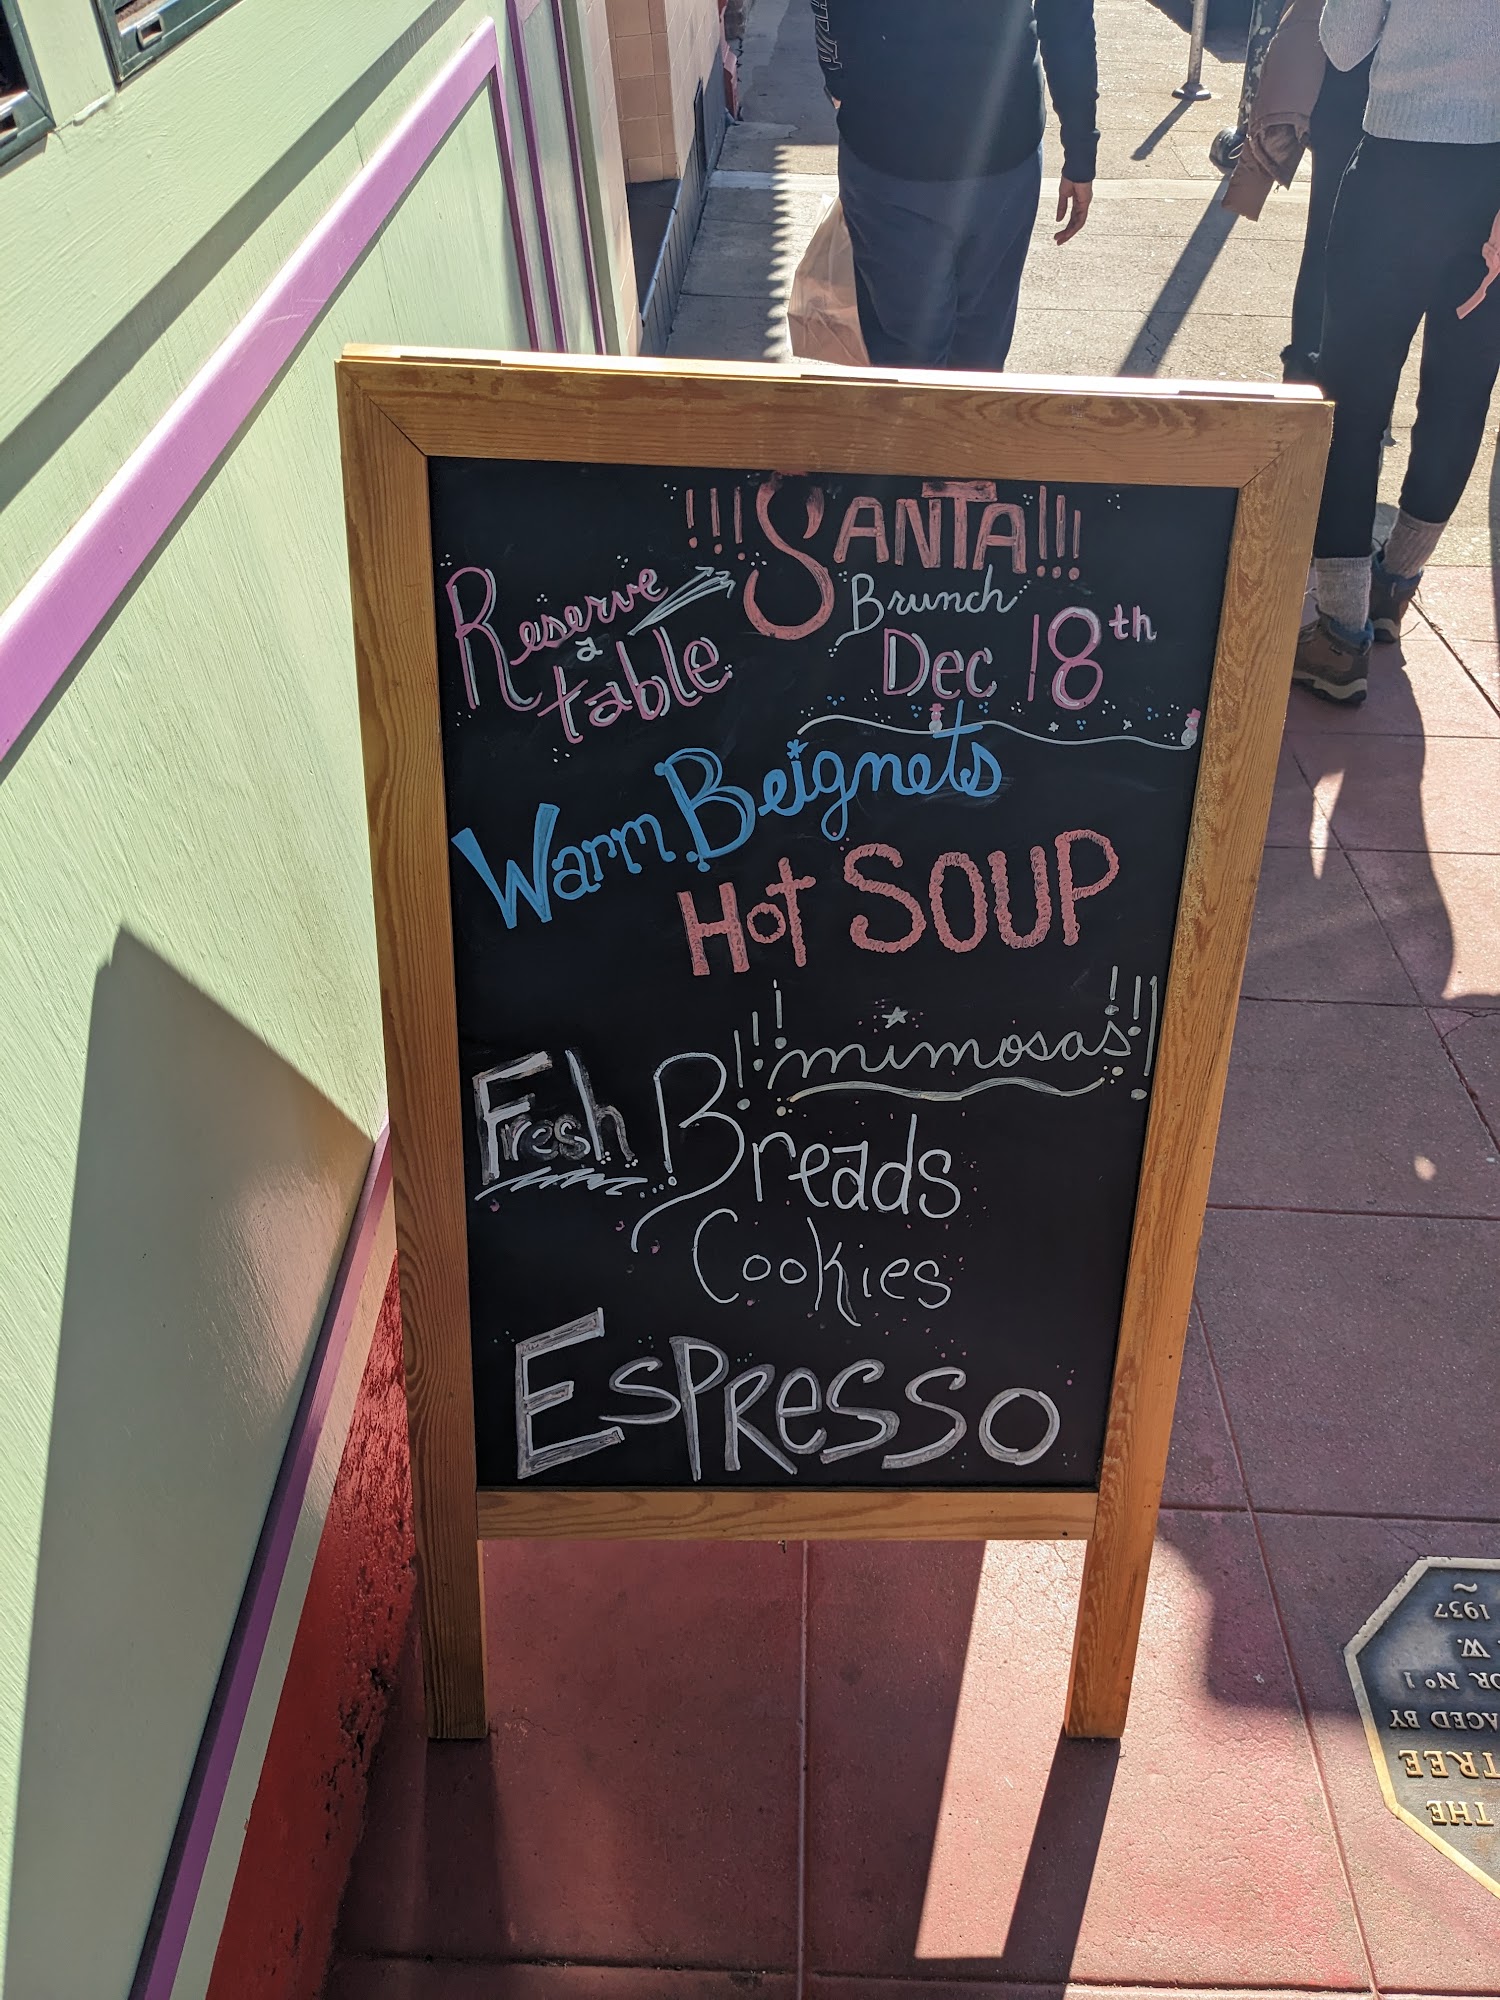 !!!SANTA!!!
Brunch
Reserve
a
table
Dec 18th
Warm Beignets
Hot SOUP
!!!mimosas!!!
Fresh Breads
Cookies
ESPResso
THE
TREE
ACED BY
OR Nº 1
W.
1937
~